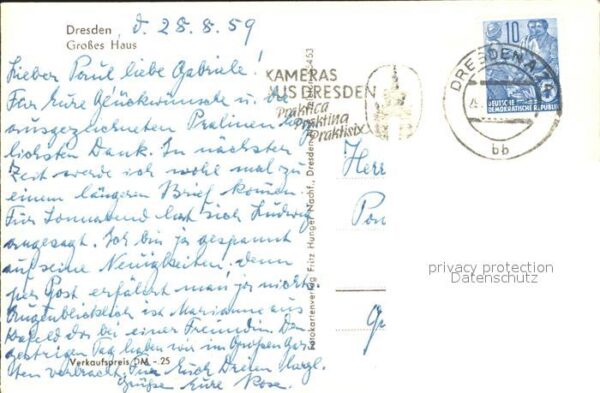 Dresden d. 28.8.59
Großes Haus
Lieber Paul liebe Gabriele!
Für Eure Glückwünsche u. die
ausgezeichneten Pralinen herz
lichsten Dank. In nächster
Zeit werde ich wohl mal zu
einem längeren Brief kommen
Für Sonnabend hat sich Ludwig
angesagt. Ich bin ja gespannt
auf seine Neuigkeiten, denn
per Post erfährt man ja nichts.
Augenblicklich ist Marianne aus
da bei einer Freundin. Den
gestrigen Tag haben wir im Großen Gar
ten verbracht. Für Euch Dreien herzl.
Grüße Eure Rosa.
Verkaufspreis DM -.25
KAMERAS
AUS DRESDEN
Praktica
Praktina
Praktisix
DRESDEN A
bb
10
DEUTSCHE
DEMOKRATISCHE REPUBLIK
Fotokartenverlag Fritz Hunger Nachf., Dresden
Herr
privacy protection
Datenschutz